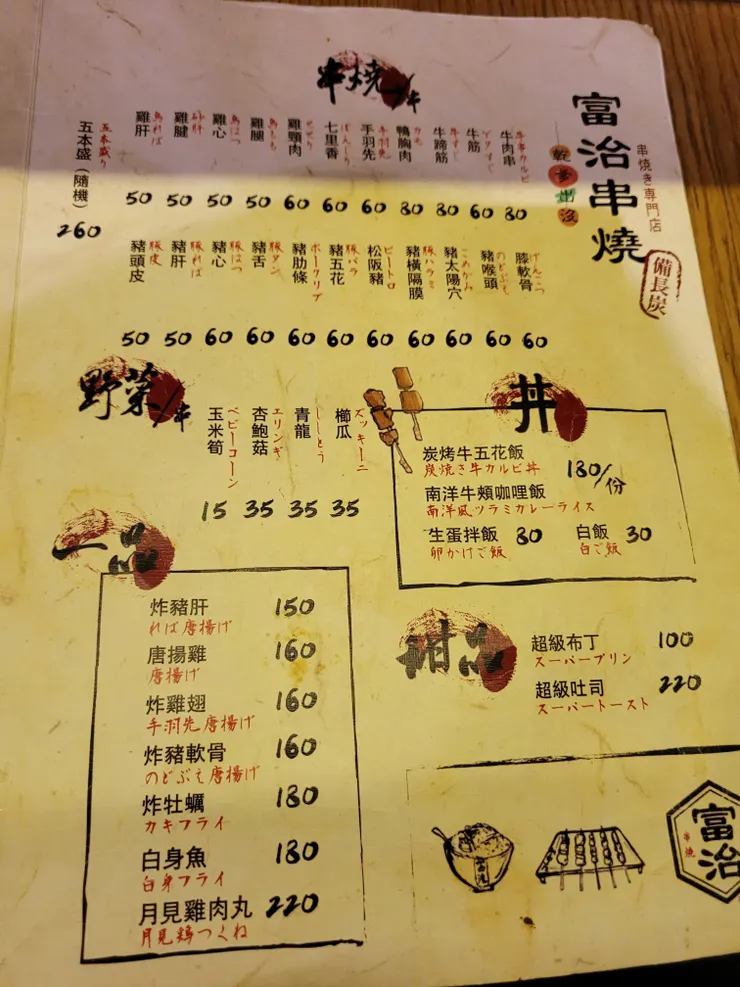 富治串燒
串燒き專門店
乾 多 出沒
備長炭
串燒/串
牛肉串
牛串カルビ
80
牛筋
60
牛蹄筋
牛すじ
80
鴨胸肉
かも
80
手羽先
手羽先
60
七里香
ぼんじり
60
雞頸肉
せせり
60
雞腿
鳥もも
50
雞心
鳥はつ
50
雞腱
砂肝
50
雞肝
鳥れば
50
五本盛(隨機)
五本盛り
260
膝軟骨
げんこつ
60
豬喉頭
のどぶえ
60
豬太陽穴
こめかみ
60
豬橫隔膜
豚ハラミ
60
松阪豬
ピートロ
60
豬五花
豚バラ
60
豬肋條
ポークリブ
60
豬舌
豚タン
60
豬心
豚はつ
60
豬肝
豚れば
50
豬頭皮
豚皮
50
野菜/串
櫛瓜
ズッキーニ
35
青龍
ししとう
35
杏鮑菇
エリンギ
35
玉米筍
ベビーコーン
15
丼
炭烤牛五花飯
炭焼き牛カルビ丼
180/份
南洋牛頰咖哩飯
南洋風ツラミカレーライス
生蛋拌飯 80
卵かけご飯
白飯 30
白ご飯
一品
炸豬肝 150
れば唐揚げ
唐揚雞 160
唐揚げ
炸雞翅 160
手羽先唐揚げ
炸豬軟骨 160
のどぶえ唐揚げ
炸牡蠣 180
カキフライ
白身魚 180
白身フライ
月見雞肉丸 220
月見鶏つくね
甜品
超級布丁 100
スーパープリン
超級吐司 220
スーパートースト
富治
串燒